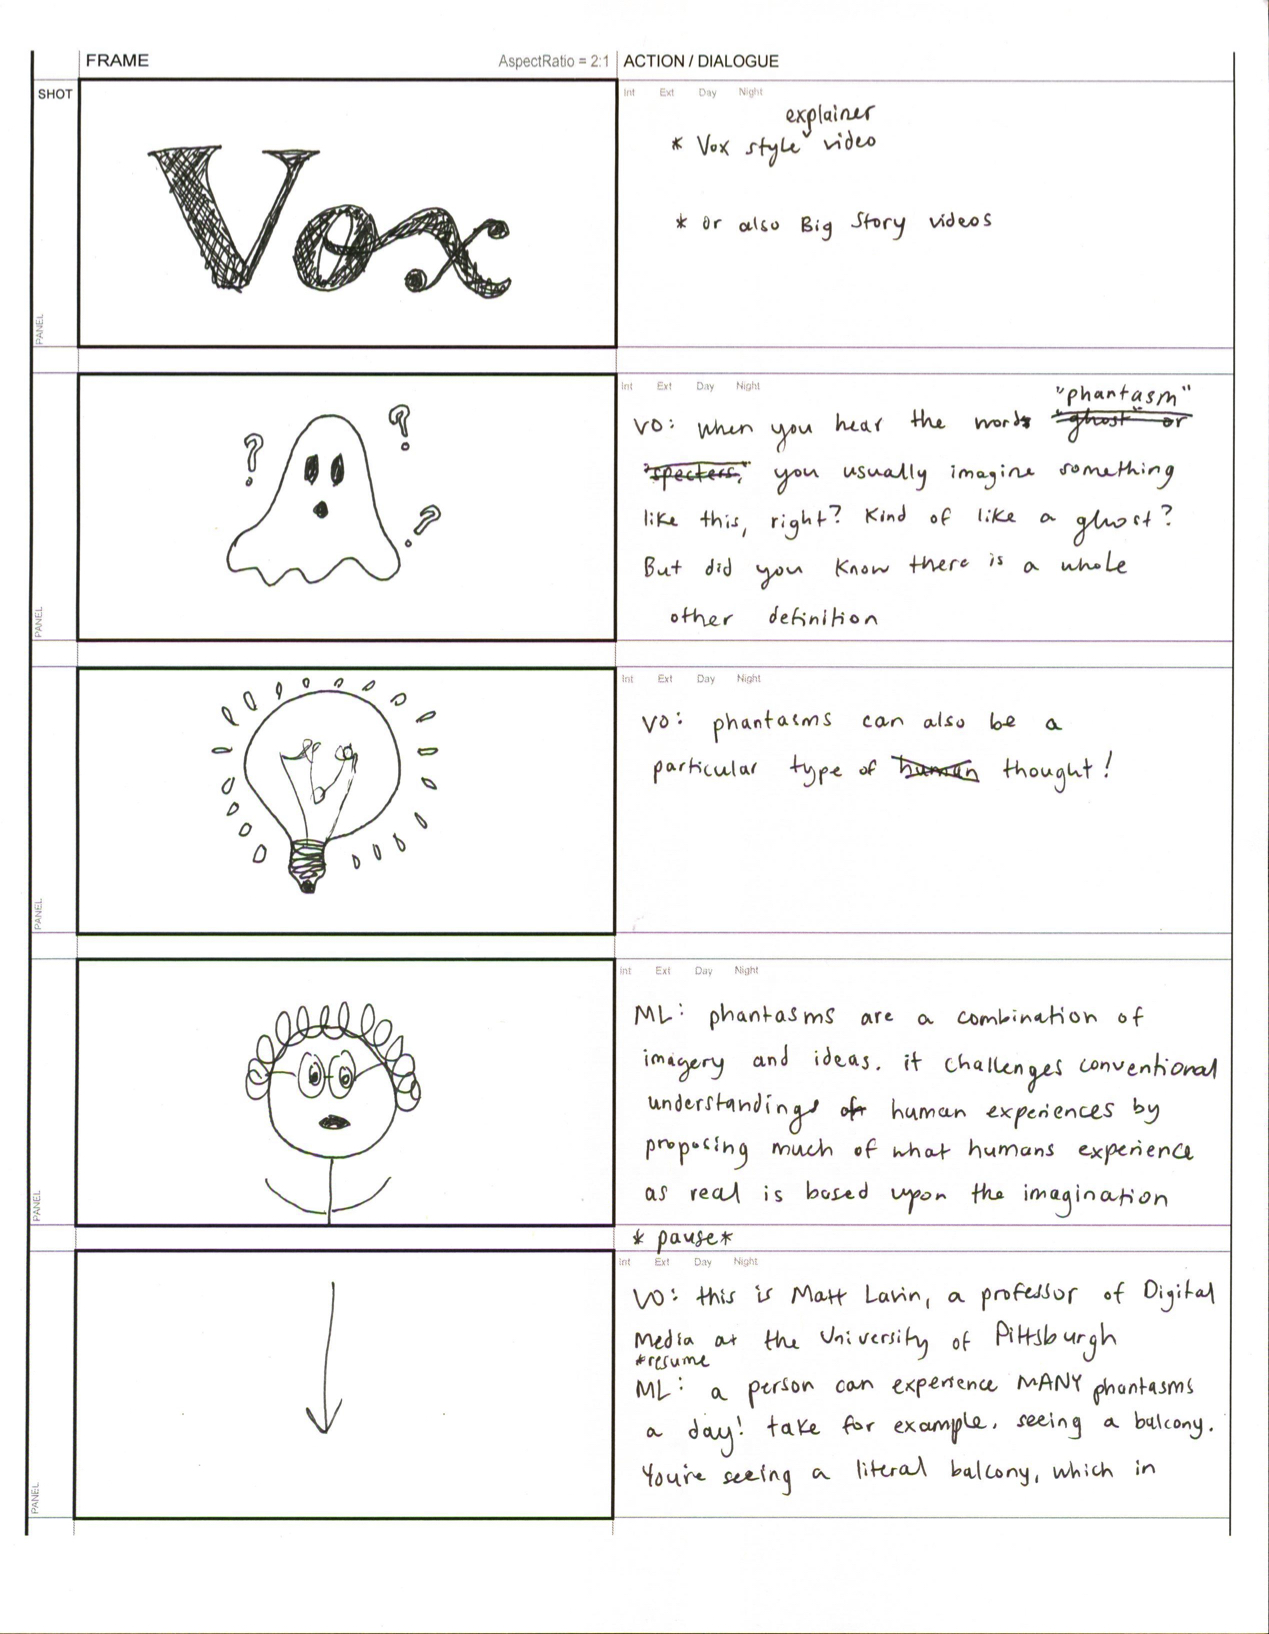 FRAME
AspectRatio = 2:1
ACTION / DIALOGUE
SHOT
Int Ext Day Night
explainer
* Vox style video
* or also Big Story videos
Vox
PANEL
Int Ext Day Night
"phantasm"
VO: when you hear the words "ghost" or
"specters," you usually imagine something
like this, right? Kind of like a ghost?
But did you know there is a whole
other definition
? ? ?
PANEL
Int Ext Day Night
VO: phantasms can also be a
particular type of human thought!
PANEL
Int Ext Day Night
ML: phantasms are a combination of
imagery and ideas. it challenges conventional
understandings of human experiences by
proposing much of what humans experience
as real is based upon the imagination
PANEL
* pause*
Int Ext Day Night
VO: this is Matt Lavin, a professor of Digital
Media at the University of Pittsburgh
*resume
ML: a person can experience MANY phantasms
a day! take for example, seeing a balcony.
You're seeing a literal balcony, which in
PANEL